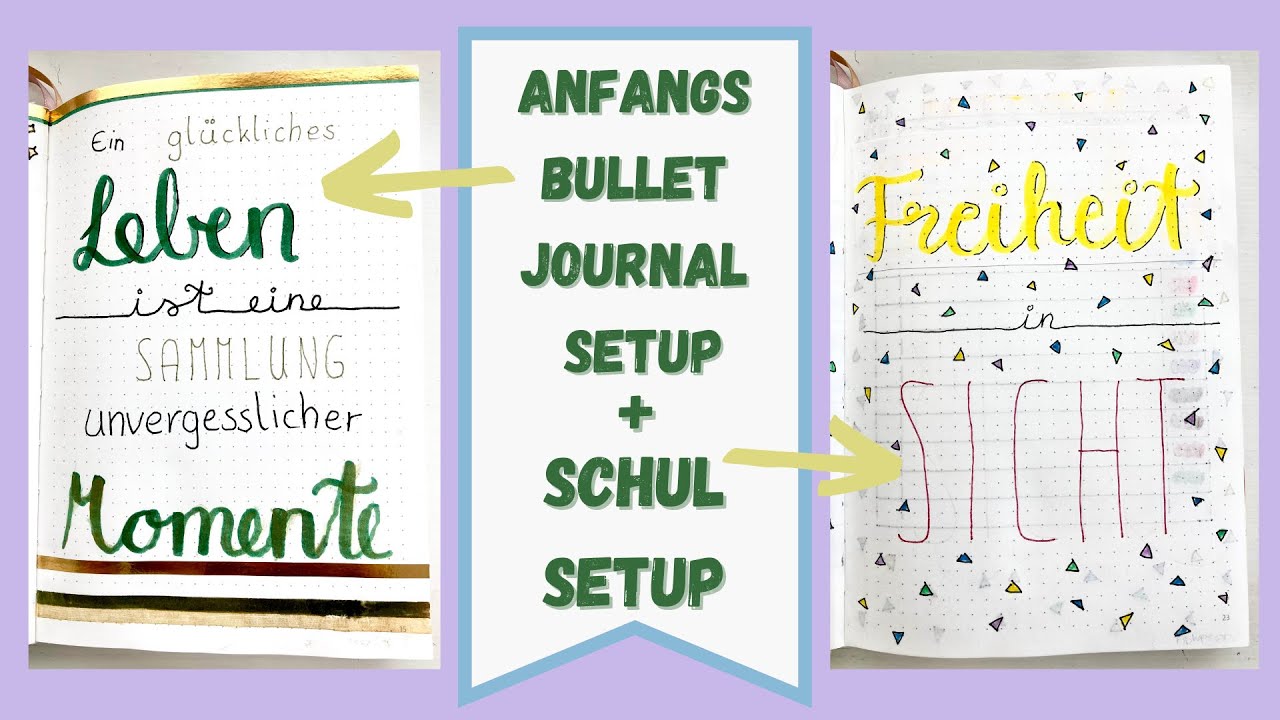 Ein glückliches
Leben
ist eine
SAMMLUNG
unvergesslicher
Momente
15
ANFANGS
BULLET
JOURNAL
SETUP
+
SCHUL
SETUP
Freiheit
in
SICHT
23